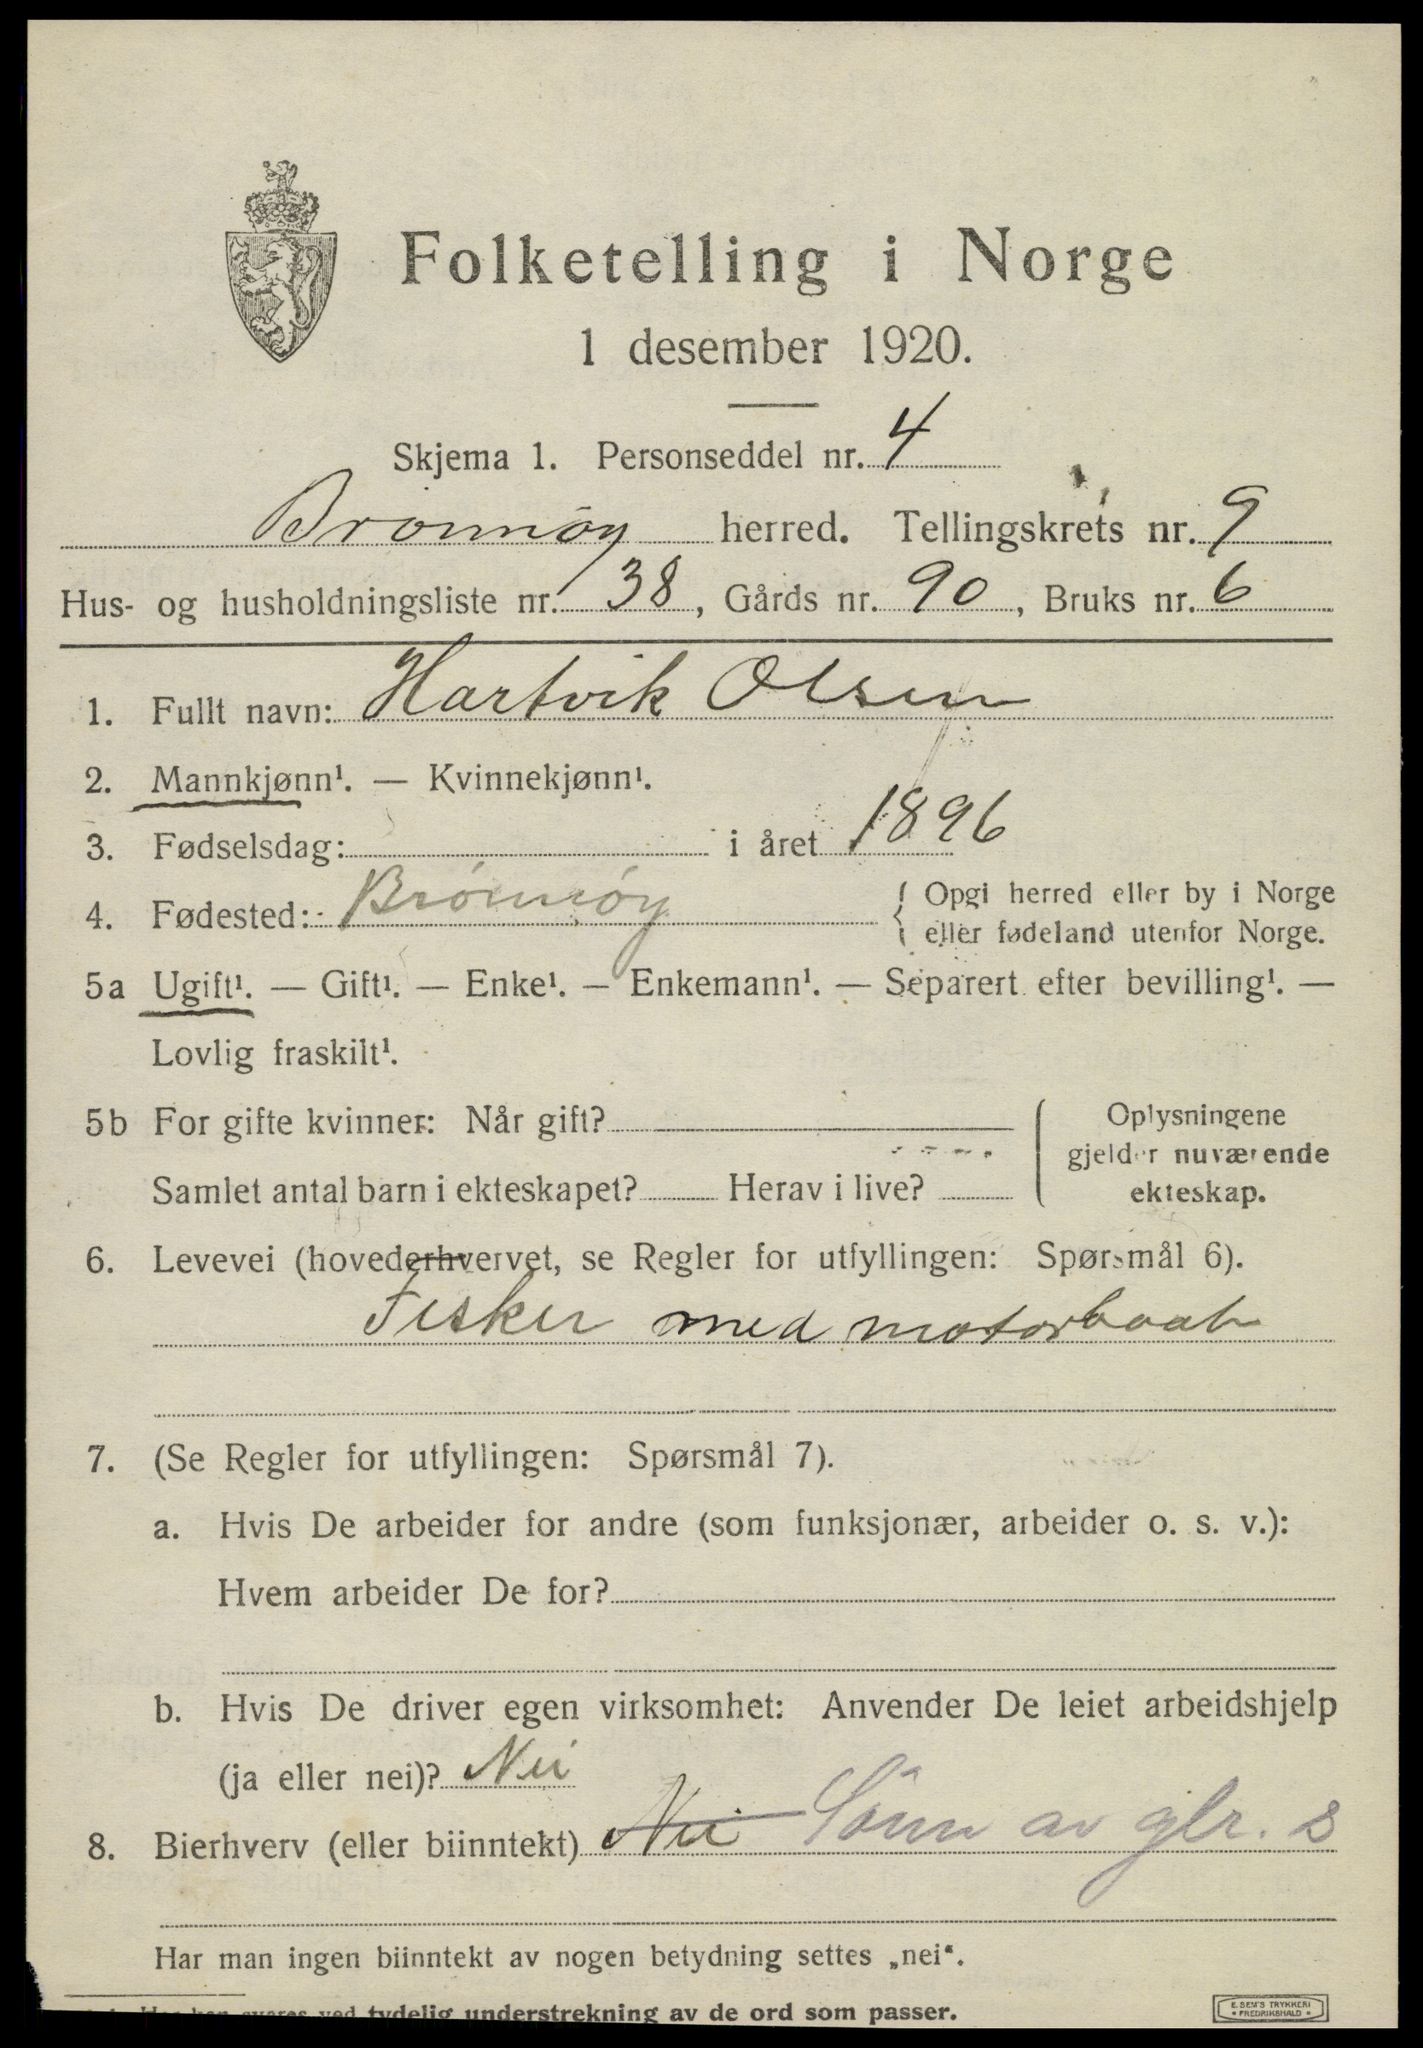 Folketelling i Norge
1 desember 1920.
Skjema 1. Personseddel nr. 4
Brönnöy herred. Tellingskrets nr. 9
Hus- og husholdningsliste nr. 38, Gårds nr. 90, Bruks nr. 6
1. Fullt navn: Hartvik Olsen
2. Mannkjønn¹. — Kvinnekjønn¹.
3. Fødselsdag: i året 1896
4. Fødested: Brönnöy { Opgi herred eller by i Norge
eller fødeland utenfor Norge.
5a Ugift¹. — Gift¹. — Enke¹. — Enkemann¹. — Separert efter bevilling¹. —
Lovlig fraskilt¹.
5b For gifte kvinner: Når gift?
Samlet antal barn i ekteskapet? Herav i live?
Oplysningene
gjelder nuværende
ekteskap.
6. Levevei (hovederhvervet, se Regler for utfyllingen: Spørsmål 6).
Fisker med motorbaat
7. (Se Regler for utfyllingen: Spørsmål 7).
a. Hvis De arbeider for andre (som funksjonær, arbeider o. s. v.):
Hvem arbeider De for?
b. Hvis De driver egen virksomhet: Anvender De leiet arbeidshjelp
(ja eller nei)? Nei
8. Bierhverv (eller biinntekt) Nei Sönn av gbr. s
Har man ingen biinntekt av nogen betydning settes „nei“.
svares ved tydelig understrekning av de ord som passer.
E. SEM'S TRYKKERI
FREDRIKSHALD